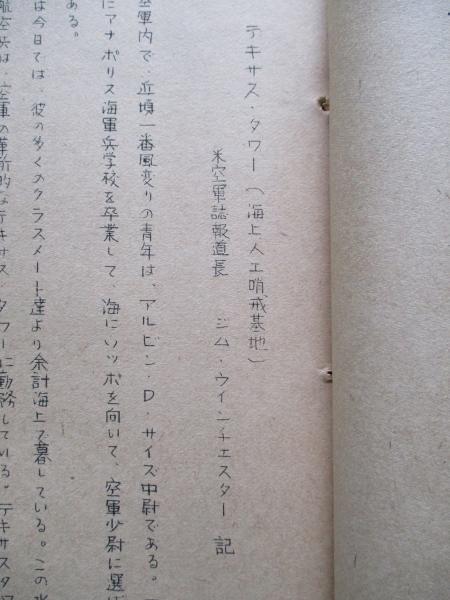 テキサス・タワー(海上人工哨戒基地)
米空軍誌報道長 ジム・ウインチェスター 記
空軍内で、近頃一番風変りの青年は、アルビン・D・サイズ中尉である。
にアナポリス海軍兵学校を卒業して、海にソッポを向いて、空軍少尉に選ば
ある。
は今日では、彼の多くのクラスメート達より余計海上で暮している。この
空軍の革新的なテキサス・タワーに勤務している。テキサスタワ